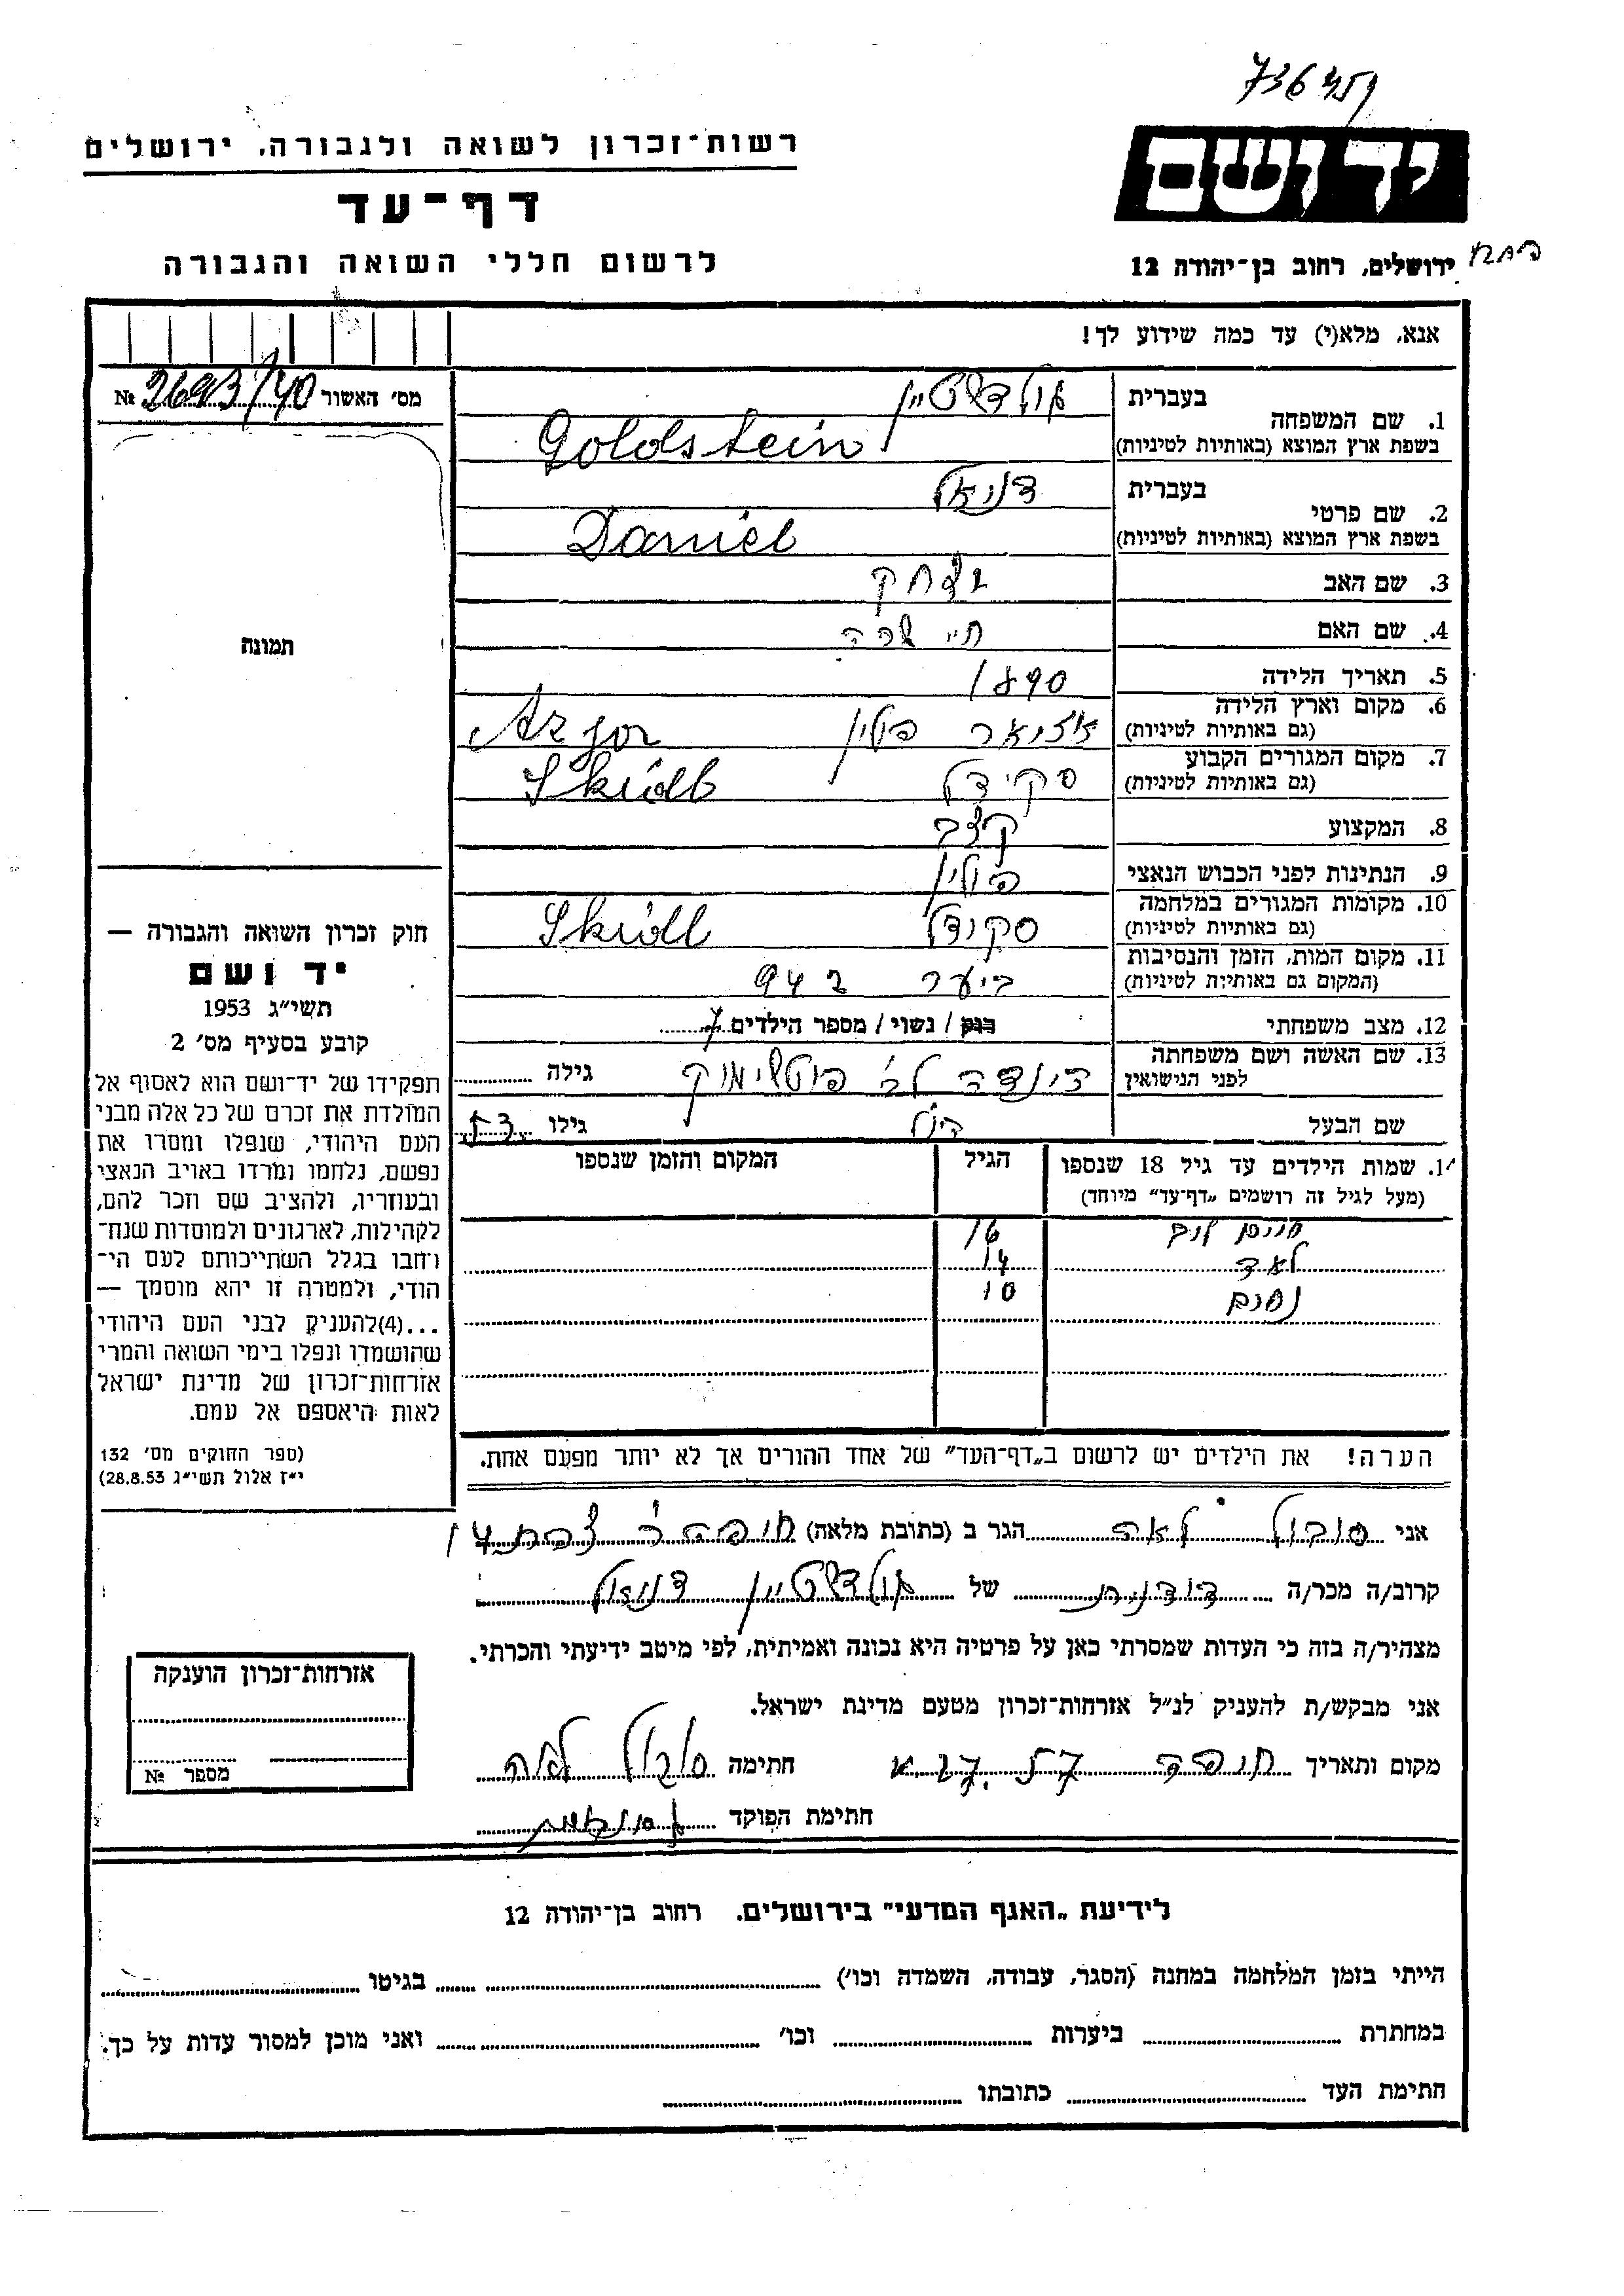 רשות־זכרון לשואה ולגבורה, ירושלים
דף־עד
לרשום חללי השואה והגבורה
יד ושם
ירושלים, רחוב בן־יהודה 12
אנא, מלא(י) עד כמה שידוע לך!
מס׳ האשור № 2693/40
1. שם המשפחה
בעברית גולדשטיין
בשפת ארץ המוצא (באותיות לטיניות) Goldstein
2. שם פרטי
בעברית דניאל
בשפת ארץ המוצא (באותיות לטיניות) Daniel
3. שם האב יצחק
4. שם האם חיי שרה
5. תאריך הלידה 1890
6. מקום וארץ הלידה
(גם באותיות לטיניות) פולין
7. מקום המגורים הקבוע
(גם באותיות לטיניות) סקידל
8. המקצוע קצב
9. הנתינות לפני הכבוש הנאצי פולין
10. מקומות המגורים במלחמה
(גם באותיות לטיניות) סקידל
11. מקום המות, הזמן והנסיבות
(המקום גם באותיות לטיניות) ביער 942
12. מצב משפחתי רווק / נשוי / מספר הילדים 7
13. שם האשה ושם משפחתה
לפני הנישואין גילה
שם הבעל גילו 53
14. שמות הילדים עד גיל 18 שנספו
(מעל לגיל זה רושמים „דף־עד״ מיוחד)
הגיל
המקום והזמן שנספו
16
14
נחום 10
הערה! את הילדים יש לרשום ב„דף־העד״ של אחד ההורים אך לא יותר מפעם אחת.
תמונה
חוק זכרון השואה והגבורה —
יד ושם
תשי״ג 1953
קובע בסעיף מס׳ 2
תפקידו של יד־ושם הוא לאסוף אל
המולדת את זכרם של כל אלה מבני
העם היהודי, שנפלו ומסרו את
נפשם, נלחמו ומרדו באויב הנאצי
ובעוזריו, ולהציב שם וזכר להם,
לקהילות, לארגונים ולמוסדות שנח־
רחבו בגלל השתייכותם לעם הי־
הודי, ולמטרה זו יהא מוסמך —
...(4)להעניק לבני העם היהודי
שהושמדו ונפלו בימי השואה והמרי
אזרחות־זכרון של מדינת ישראל
לאות היאספם אל עמם.
(ספר החוקים מס׳ 132
י״ז אלול תשי״ג 28.8.53)
אני סובול לאה הגר ב (כתובת מלאה) צפת 17
קרוב/ה מכר/ה דודנית של גולדשטיין דניאל
מצהיר/ה בזה כי העדות שמסרתי כאן על פרטיה היא נכונה ואמיתית, לפי מיטב ידיעתי והכרתי.
אני מבקש/ת להעניק לנ״ל אזרחות־זכרון מטעם מדינת ישראל.
מקום ותאריך חתימה סובול לאה
חתימת הפוקד
אזרחות־זכרון הוענקה
מספר №
לידיעת „האגף המדעי״ בירושלים. רחוב בן־יהודה 12
הייתי בזמן המלחמה במחנה (הסגר, עבודה, השמדה וכו׳) בגיטו
במחתרת ביערות וכו׳ ואני מוכן למסור עדות על כך.
חתימת העד כתובתו